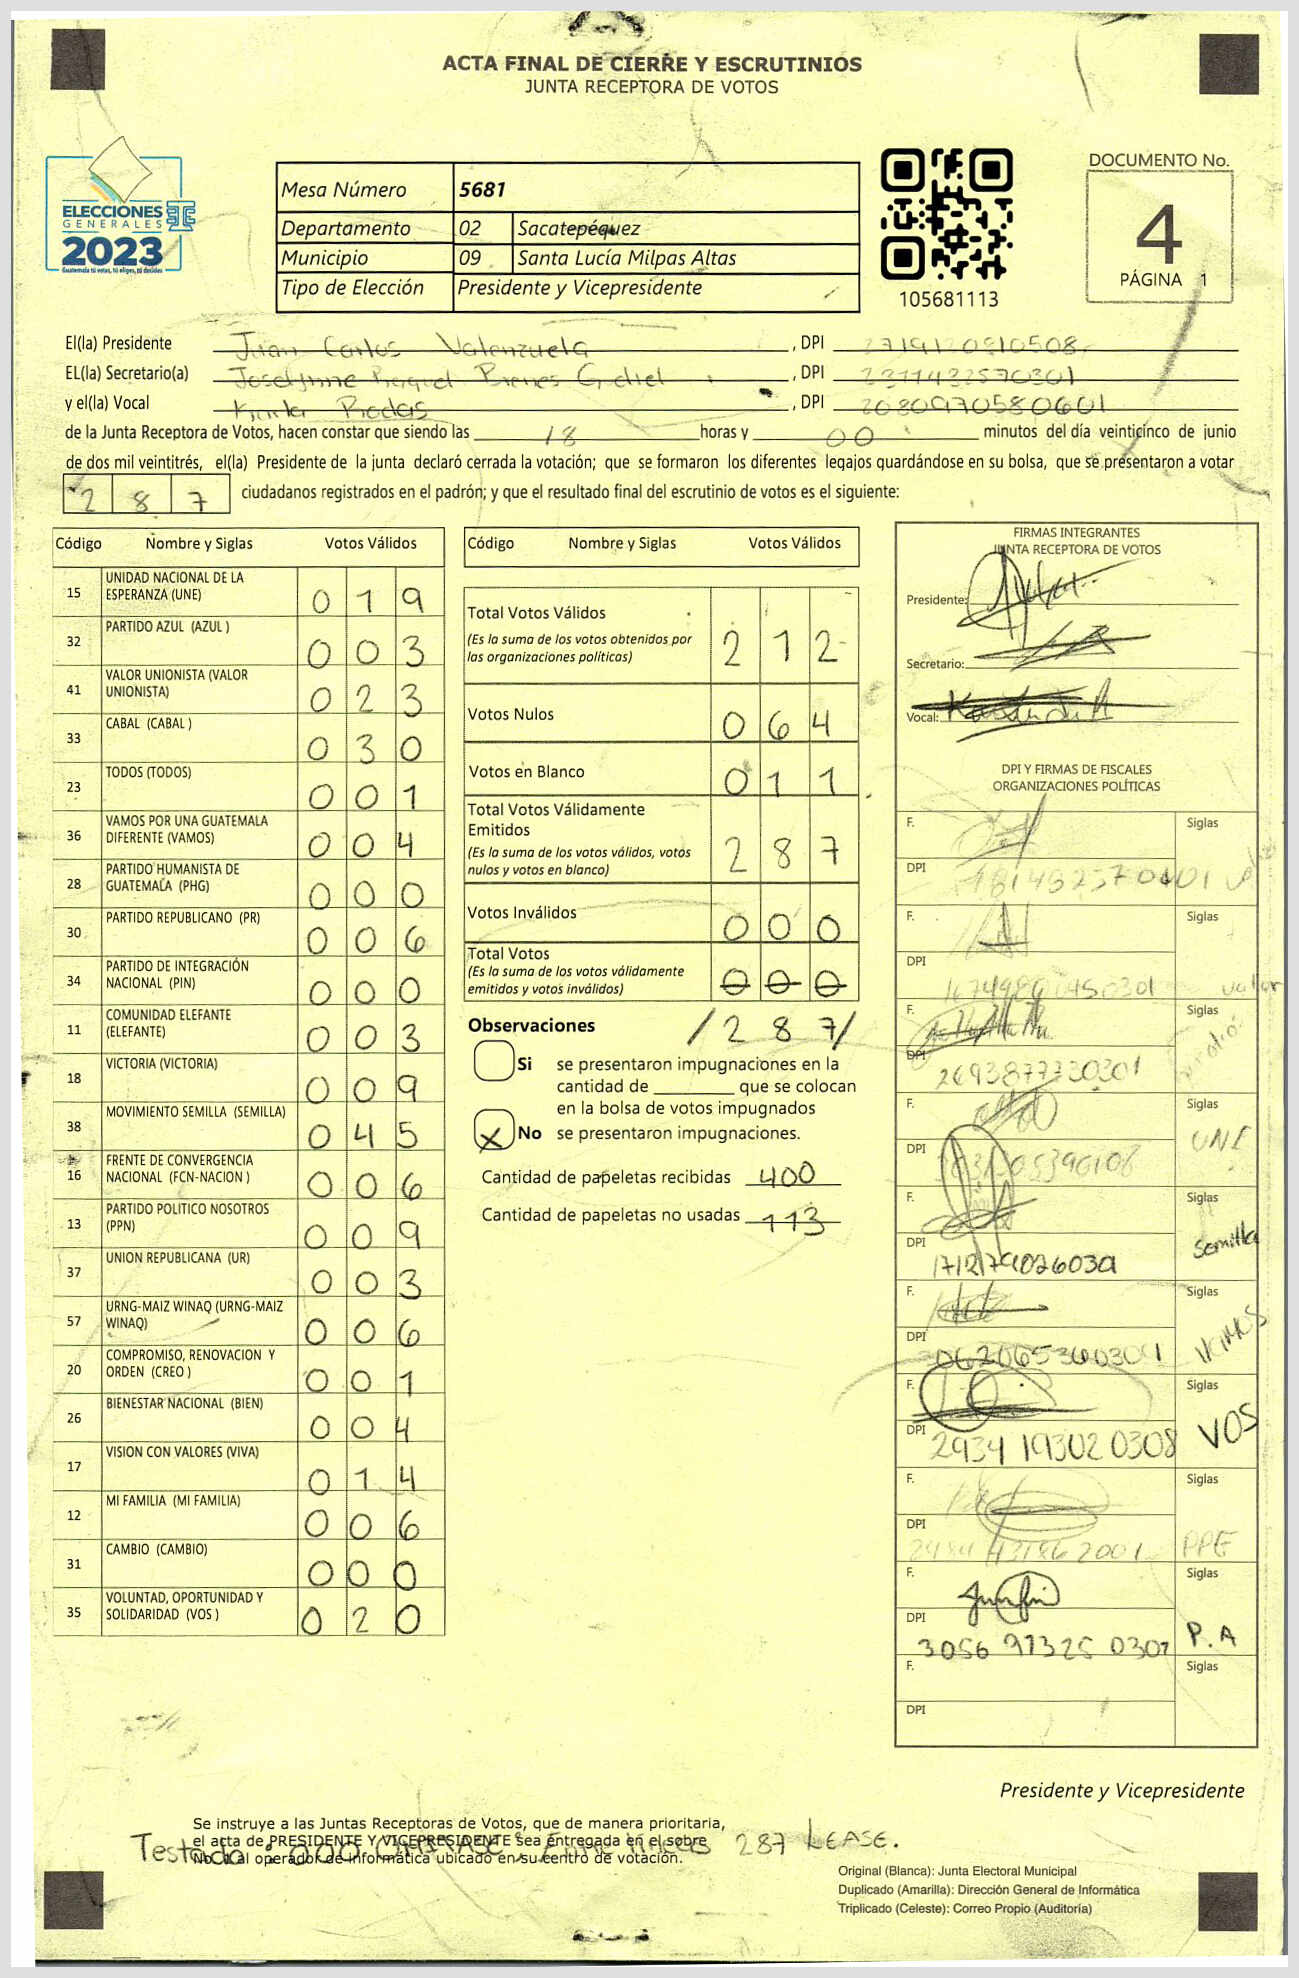 ACTA FINAL DE CIERRE Y ESCRUTINIOS
JUNTA RECEPTORA DE VOTOS
ELECCIONES
GENERALES
2023
Guatemala tú votas, tú eliges, tú decides
Mesa Número 5681
Departamento 02 Sacatepéquez
Municipio 09 Santa Lucía Milpas Altas
Tipo de Elección Presidente y Vicepresidente
105681113
DOCUMENTO No.
4
PÁGINA 1
El(la) Presidente Juan Carlos Valenzuela , DPI
EL(la) Secretario(a) , DPI 2311432570301
y el(la) Vocal Rodas , DPI 2080970580601
de la Junta Receptora de Votos, hacen constar que siendo las 18 horas y 00 minutos del día veinticinco de junio
de dos mil veintitrés, el(la) Presidente de la junta declaró cerrada la votación; que se formaron los diferentes legajos guardándose en su bolsa, que se presentaron a votar
287 ciudadanos registrados en el padrón; y que el resultado final del escrutinio de votos es el siguiente:
Código Nombre y Siglas Votos Válidos
15 UNIDAD NACIONAL DE LA ESPERANZA (UNE) 019
32 PARTIDO AZUL (AZUL ) 003
41 VALOR UNIONISTA (VALOR UNIONISTA) 023
33 CABAL (CABAL ) 030
23 TODOS (TODOS) 001
36 VAMOS POR UNA GUATEMALA DIFERENTE (VAMOS) 004
28 PARTIDO HUMANISTA DE GUATEMALA (PHG) 000
30 PARTIDO REPUBLICANO (PR) 006
34 PARTIDO DE INTEGRACIÓN NACIONAL (PIN) 000
11 COMUNIDAD ELEFANTE (ELEFANTE) 003
18 VICTORIA (VICTORIA) 009
38 MOVIMIENTO SEMILLA (SEMILLA) 045
16 FRENTE DE CONVERGENCIA NACIONAL (FCN-NACION ) 006
13 PARTIDO POLITICO NOSOTROS (PPN) 009
37 UNION REPUBLICANA (UR) 003
57 URNG-MAIZ WINAQ (URNG-MAIZ WINAQ) 006
20 COMPROMISO, RENOVACION Y ORDEN (CREO ) 001
26 BIENESTAR NACIONAL (BIEN) 004
17 VISION CON VALORES (VIVA) 014
12 MI FAMILIA (MI FAMILIA) 006
31 CAMBIO (CAMBIO) 000
35 VOLUNTAD, OPORTUNIDAD Y SOLIDARIDAD (VOS ) 020
Código Nombre y Siglas Votos Válidos
Total Votos Válidos 212
(Es la suma de los votos obtenidos por
las organizaciones políticas)
Votos Nulos 064
Votos en Blanco 011
Total Votos Válidamente
Emitidos 287
(Es la suma de los votos válidos, votos
nulos y votos en blanco)
Votos Inválidos 000
Total Votos 000
(Es la suma de los votos válidamente
emitidos y votos inválidos)
Observaciones /287/
Si se presentaron impugnaciones en la
cantidad de ________ que se colocan
en la bolsa de votos impugnados
X No se presentaron impugnaciones.
Cantidad de papeletas recibidas 400
Cantidad de papeletas no usadas 113
FIRMAS INTEGRANTES
JUNTA RECEPTORA DE VOTOS
Presidente:
Secretario:
Vocal:
DPI Y FIRMAS DE FISCALES
ORGANIZACIONES POLÍTICAS
F. Siglas
DPI
F. Siglas
DPI valor
F. Siglas
DPI 2693877730301
F. Siglas
DPI UNE
F. Siglas
DPI Semilla
F. Siglas
DPI VAMOS
F. Siglas
DPI 2934 19302 0308 VOS
F. Siglas
DPI PPE
F. Siglas
DPI 3056 97325 0307 P.A
F. Siglas
DPI
Presidente y Vicepresidente
Se instruye a las Juntas Receptoras de Votos, que de manera prioritaria,
el acta de PRESIDENTE Y VICEPRESIDENTE sea entregada en el sobre
No. 4 al operador de informática ubicado en su centro de votación.
Testado: 000 OMITASE; Entre líneas 287 LEASE.
Original (Blanca): Junta Electoral Municipal
Duplicado (Amarilla): Dirección General de Informática
Triplicado (Celeste): Correo Propio (Auditoría)